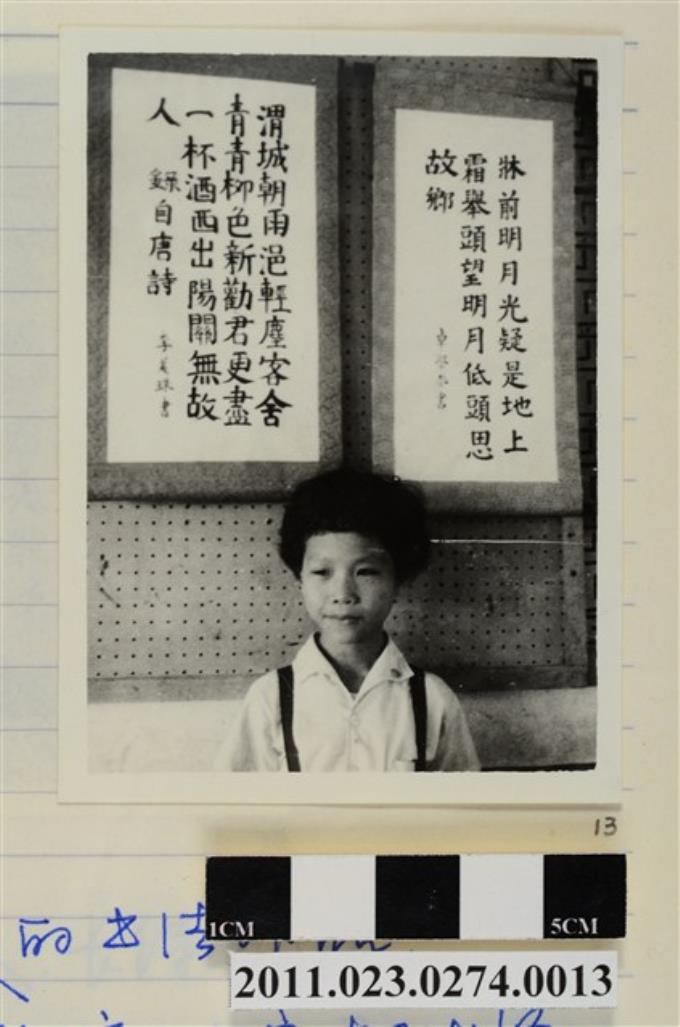 牀前明月光疑是地上
霜舉頭望明月低頭思
故鄉
渭城朝雨浥輕塵客舍
青青柳色新勸君更盡
一杯酒西出陽關無故
人
錄自唐詩
13
1CM
5CM
2011.023.0274.0013